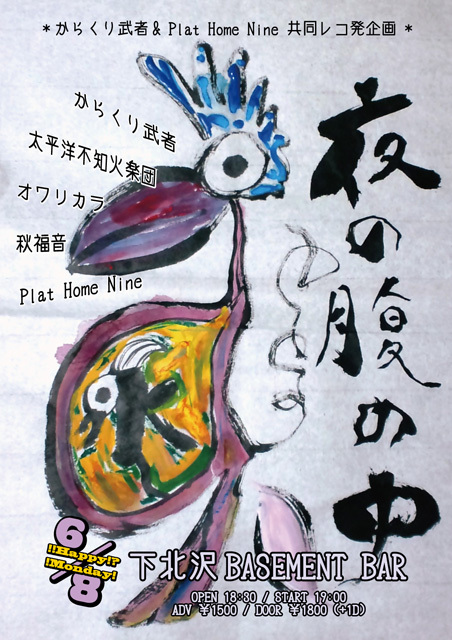 ＊からくり武者＆Plat Home Nine 共同レコ発企画＊
夜の腹の中
からくり武者
太平洋不知火楽団
オワリカラ
秋福音
Plat Home Nine
水
6/8
!!Happy!?
!Monday!
下北沢BASEMENT BAR
OPEN 18:30 / START 19:00
ADV ￥1500 / DOOR ￥1800 (+1D)